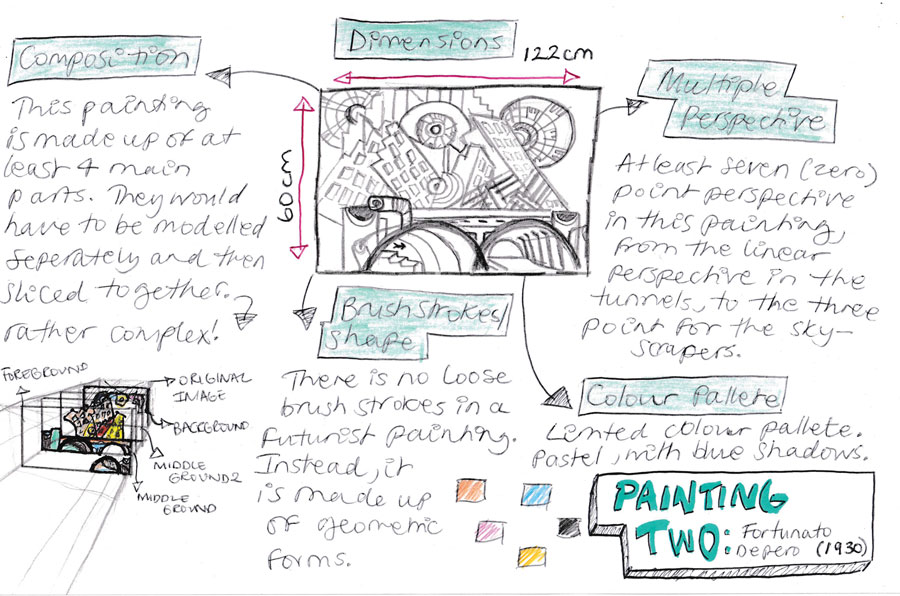 Composition
This painting
is made up of at
least 4 main
parts. They would
have to be modelled
seperately and then
sliced together.
rather complex!
FOREGROUND
ORIGINAL
IMAGE
BACKGROUND
MIDDLE
GROUND 2
MIDDLE
GROUND
Dimensions
122cm
60cm
Brushstrokes/
shape
There is no loose
brush strokes in a
futurist painting.
Instead, it
is made up
of geometric
forms.
Multiple
Perspective
At least seven (zero)
point perspective
in this painting,
from the linear
perspective in the
tunnels, to the three
point for the sky-
scrapers.
Colour Pallete
Limted colour pallete.
Pastel, with blue shadows.
PAINTING
TWO: Fortunato
Depero (1930)